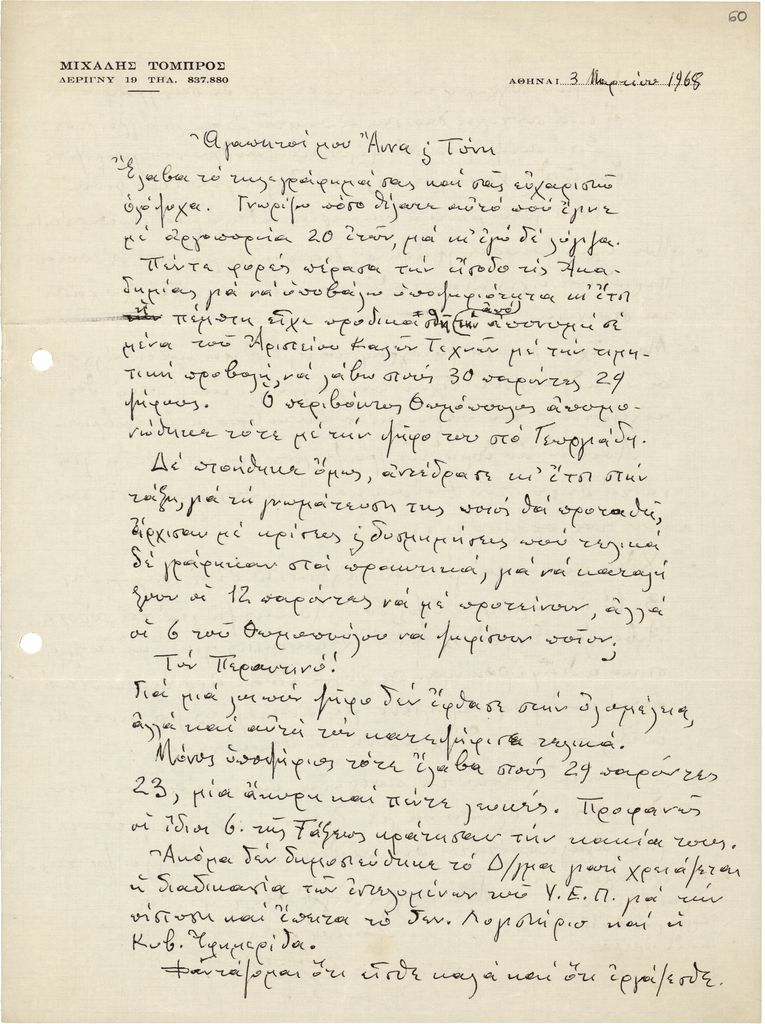 60
ΜΙΧΑΛΗΣ ΤΟΜΠΡΟΣ
ΔΕΡΙΓΝΥ 19 ΤΗΛ. 837.880
ΑΘΗΝΑΙ 3 Μαρτίου 1968
Ἀγαπητοί μου Ἄννα & Τόνη
Ἔλαβα τό τηλεγράφημά σας καί σᾶς εὐχαριστῶ
ὁλόψυχα. Γνωρίζω πόσο θέλατε αὐτό πού ἔγινε
μέ ἀργοπορία 20 ἐτῶν, μά κι' ἐγώ δέ λύγισα.
Πέντε φορές πέρασα τήν εἴσοδο τῆς Ἀκα-
δημίας γιά νά ὑποβάλω ὑποψηφιότητα κι' ἔτσι
ἡ πέμπτη εἶχε προδικασθῆ τήν ἀπονομή σέ
μένα τοῦ Ἀριστείου Καλῶν Τεχνῶν μέ τήν τιμη-
τική προβολή, νά λάβω στούς 30 παρόντες 29
ψήφους. Ὁ περιβόητος Θωμόπουλος ἀπομο-
νώθηκε τότε μέ τήν ψῆφο του στό Γεωργιάδη.
Δέ πτοήθηκε ὅμως, ἀντέδρασε κι' ἔτσι στήν
τάξη, γιά τή γνωμάτευση της ποιός θά προταθῆ,
ἄρχισαν μέ κρίσεις & δυσφημήσεις πού τελικά
δέ γράφηκαν στά πρακτικά, γιά νά καταλή
ξουν οἱ 12 παρόντες νά μέ προτείνουν, ἀλλά
οἱ 6 τοῦ Θωμοπούλου νά ψηφίσουν ποῖον;
Τόν Περαντινό!
Γιά μιά λοιπόν ψῆφο δέν ἔφθασε στήν ὁλομέλεια,
ἀλλά καί αὐτή τόν κατεψήφισε τελικά.
Μόνος ὑποψήφιος τότε ἔλαβα στούς 29 παρόντες
23, μία ἄκυρη καί πέντε λευκές. Προφανῶς
οἱ ἴδιοι 6 τῆς Τάξεως κράτησαν τήν κακία τους.
Ἀκόμα δέν δημοσιεύθηκε τό Δ/γμα γιατί χρειάζεται
ἡ διαδικασία τῶν ἐντελομένων τοῦ Υ.Ε.Π. γιά τήν
πίστωση καί ἔπειτα τό Γεν. Λογιστήριο καί ἡ
Κυβ. Ἐφημερίδα.
Φαντάζομαι ὅτι εἶσθε καλά καί ὅτι ἐργάζεσθε.